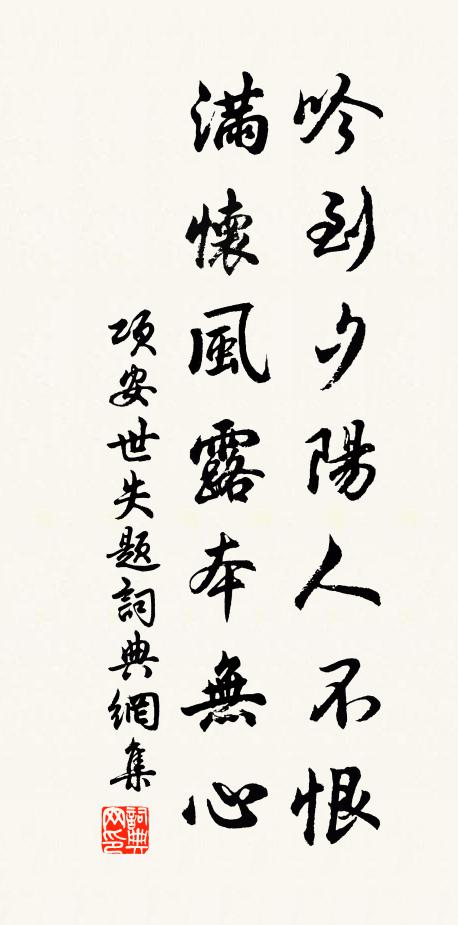 吟到夕陽人不恨
滿懷風露本無心
項安世失題詞典網集
詞典网印